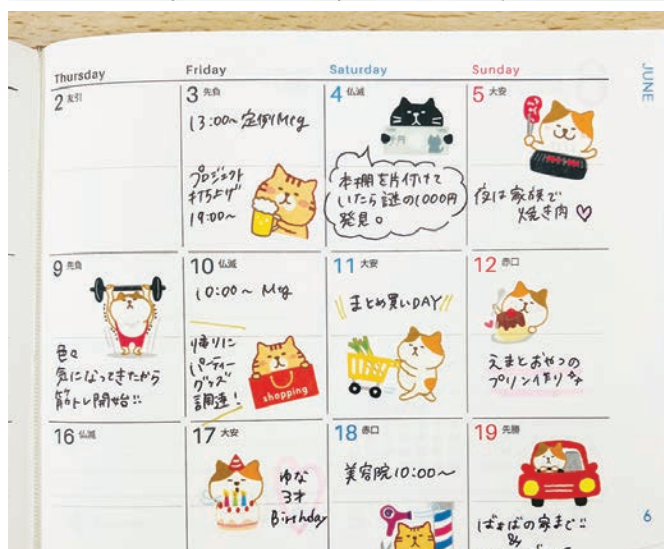 Thursday
Friday
Saturday
Sunday
JUNE
2 友引
3 先負
13:00~ 定例Mtg
プロジェクト
打ち上げ
19:00~
4 仏滅
千円
本棚を片付けて
いたら謎の1000円
発見。
5 大安
夜は家族で
焼き肉♡
9 先負
色々
気になってきたから
筋トレ開始!!
10 仏滅
10:00~ Mtg
帰りに
パーティー
グッズ
調達!
shopping
11 大安
まとめ買いDAY
12 赤口
えまとおやつの
プリン作り
16 仏滅
17 大安
ゆな
3才
Birthday
18 赤口
美容院10:00~
19 先勝
ばぁばの家まで!!
6